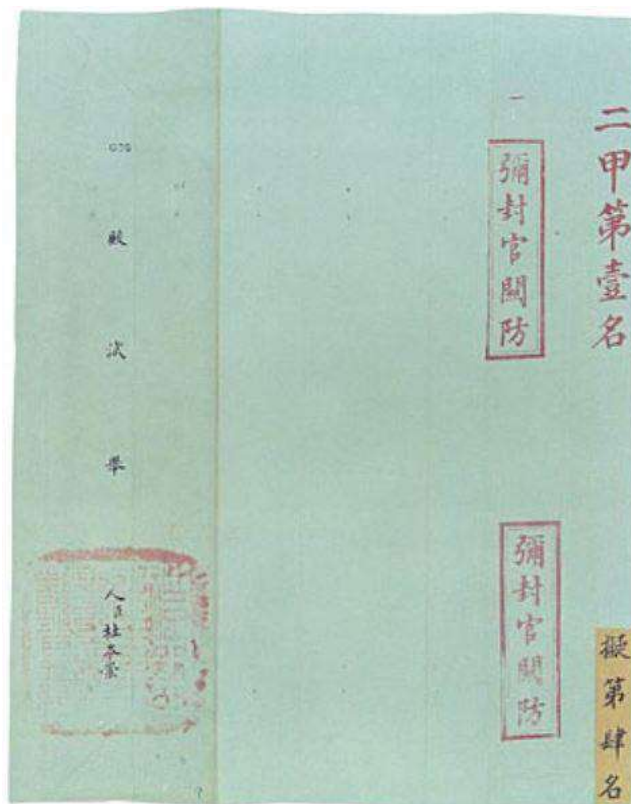 二甲第壹名
擬第肆名
一
彌封官關防
彌封官關防
殿試舉
人臣杜本崇